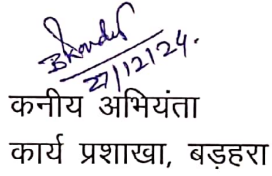 27/12/24.
कनीय अभियंता
कार्य प्रशाखा, बड़हरा